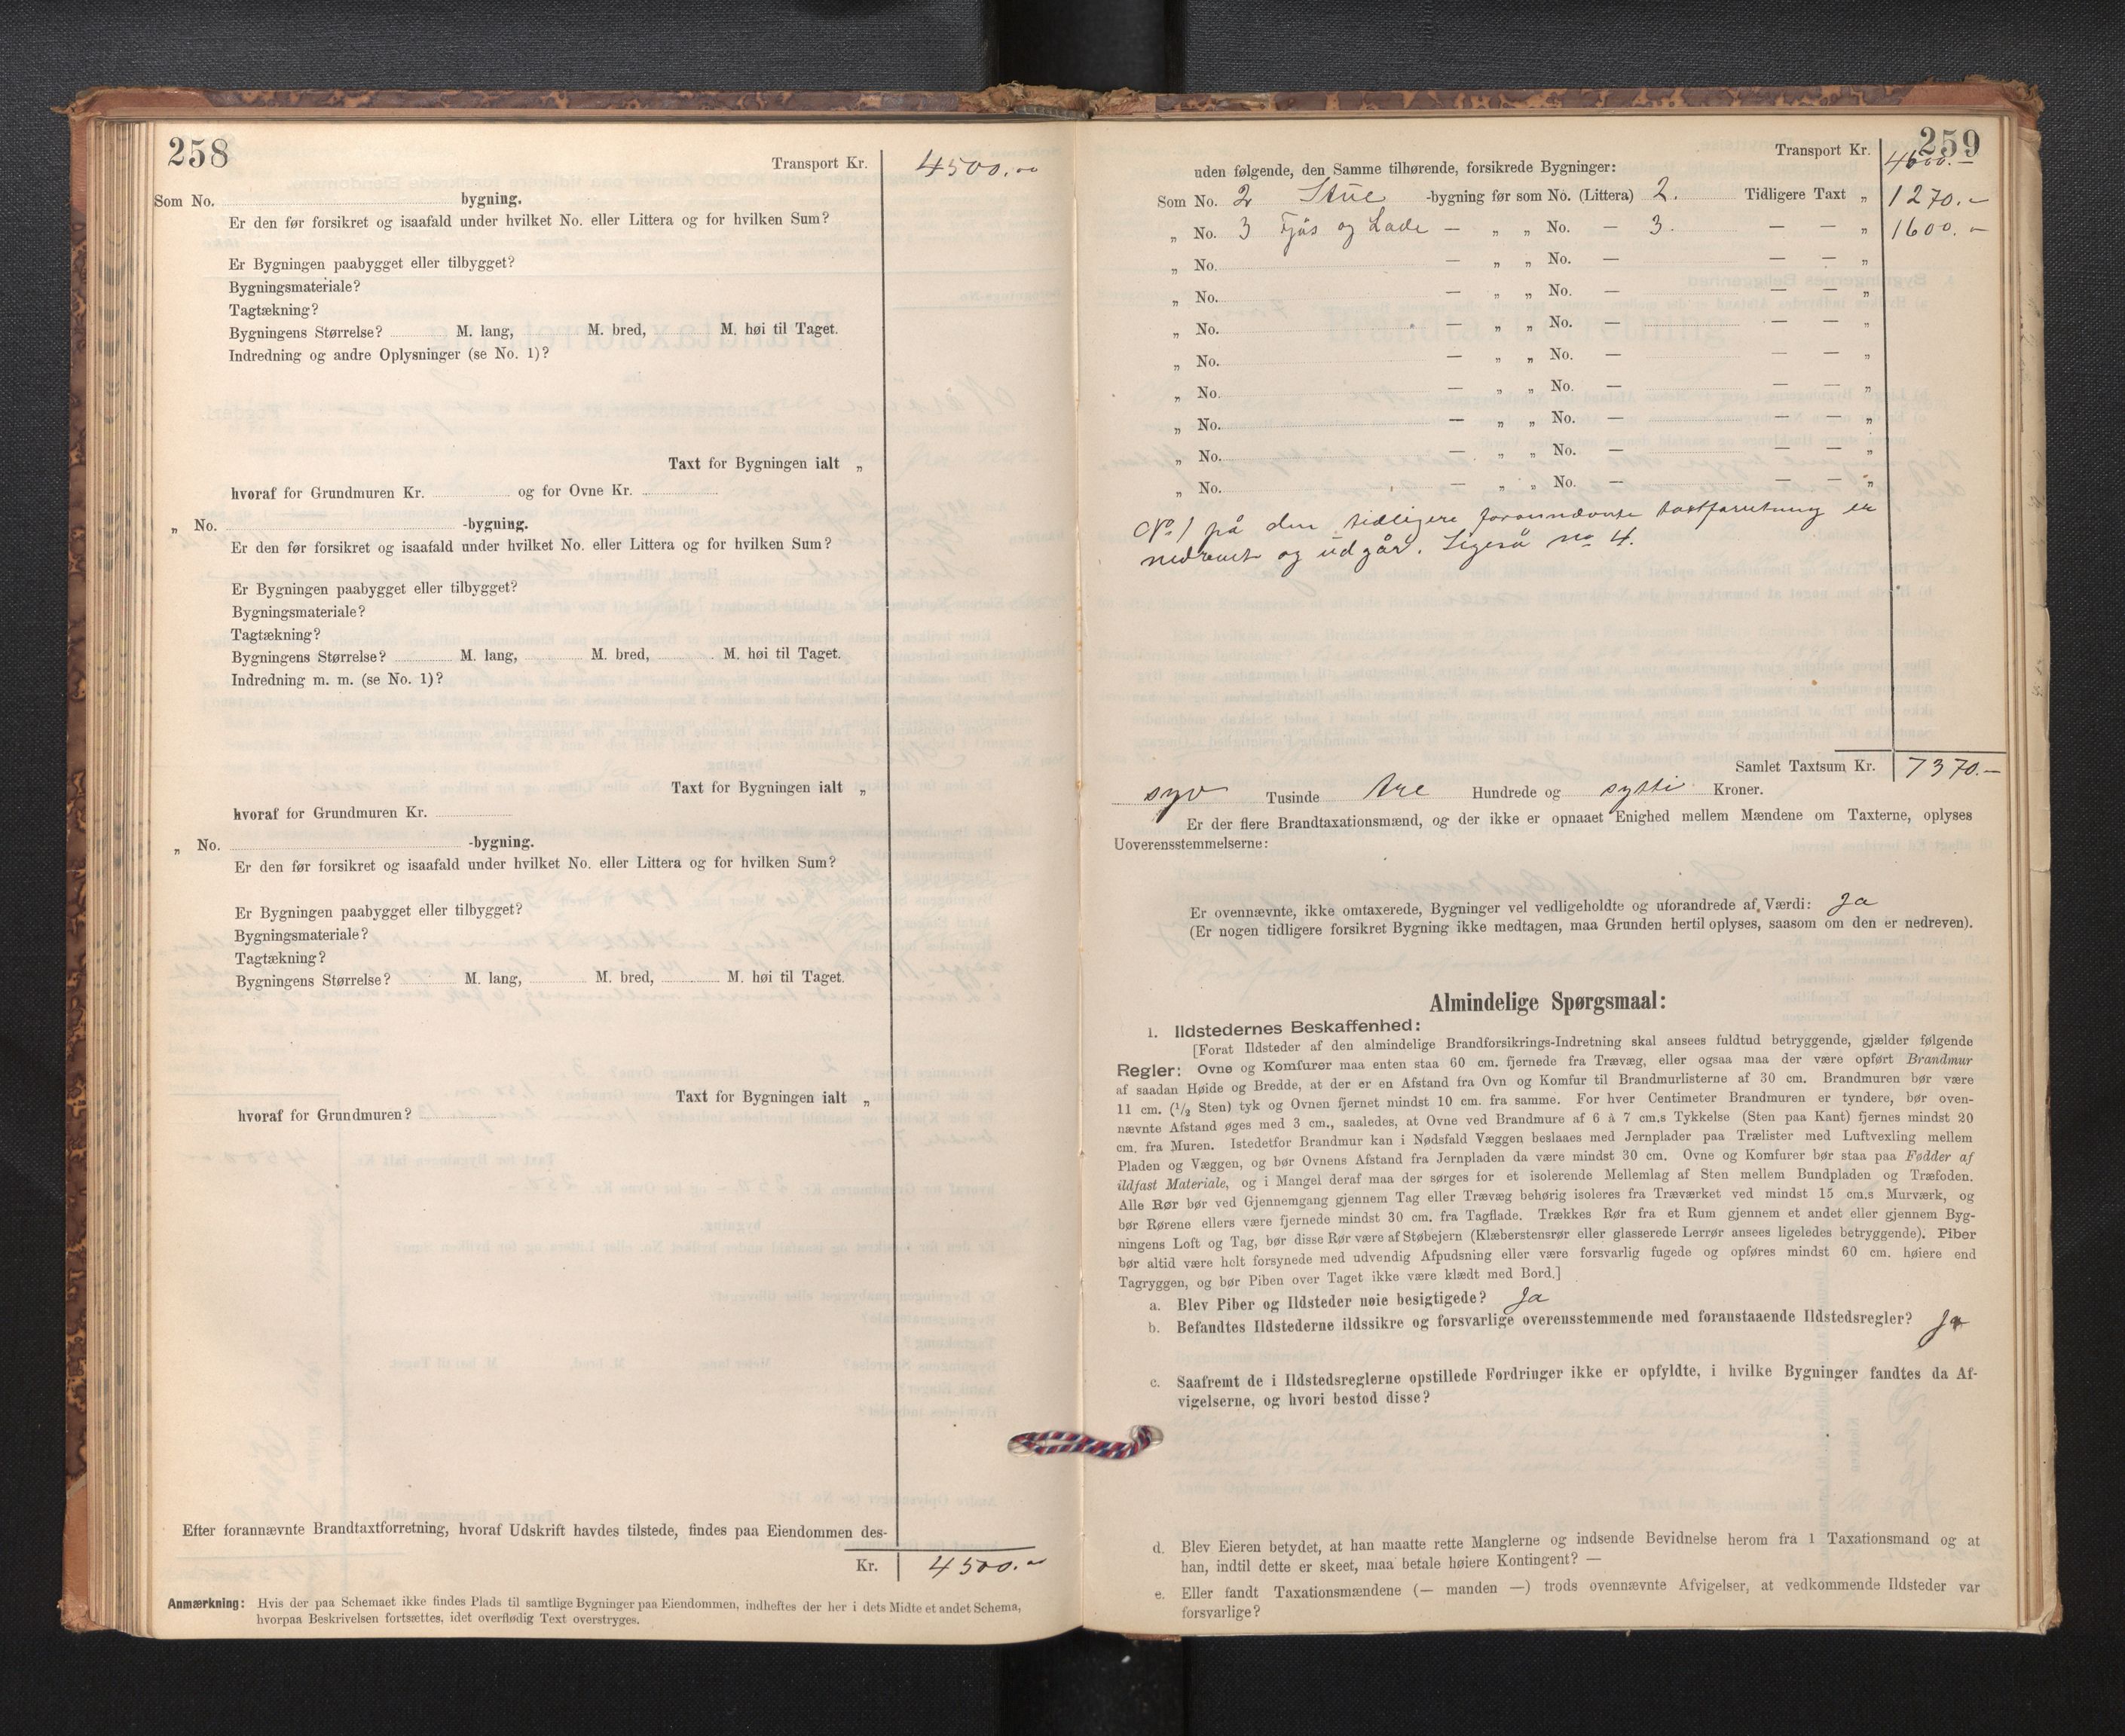 258
Transport Kr. 4500.00
Som No. bygning.
Er den før forsikret og isaafald under hvilket No. eller Littera og for hvilken Sum?
Er Bygningen paabygget eller tilbygget?
Bygningsmateriale?
Tagtækning?
Bygningens Størrelse? M. lang, M. bred, M. høi til Taget.
Indredning og andre Oplysninger (se No. 1)?
Taxt for Bygningen ialt „
hvoraf for Grundmuren Kr. og for Ovne Kr.
„ No. -bygning.
Er den før forsikret og isaafald under hvilket No. eller Littera og for hvilken Sum?
Er Bygningen paabygget eller tilbygget?
Bygningsmateriale?
Tagtækning?
Bygningens Størrelse? M. lang, M. bred, M. høi til Taget.
Indredning m. m. (se No. 1)?
Taxt for Bygningen ialt „
hvoraf for Grundmuren Kr.
„ No. -bygning.
Er den før forsikret og isaafald under hvilket No. eller Littera og for hvilken Sum?
Er Bygningen paabygget eller tilbygget?
Bygningsmateriale?
Tagtækning?
Bygningens Størrelse? M. lang, M. bred, M. høi til Taget.
Taxt for Bygningen ialt „
hvoraf for Grundmuren?
Efter forannævnte Brandtaxtforretning, hvoraf Udskrift havdes tilstede, findes paa Eiendommen des-
Kr. 4500.-
Anmærkning: Hvis der paa Schemaet ikke findes Plads til samtlige Bygninger paa Eiendommen, indheftes der her i dets Midte et andet Schema,
hvorpaa Beskrivelsen fortsættes, idet overflødig Text overstryges.
259
Transport Kr. 4500.-
uden følgende, den Samme tilhørende, forsikrede Bygninger:
Som No. 2 Stue -bygning før som No. (Littera) 2. Tidligere Taxt „ 1270.-
„ No. 3 Fjös og Lade — „ „ No. — 3. — — „ 1600.-
„ No. — „ „ No. — — — „
„ No. — „ „ No. — — — „
„ No. — „ „ No. — — — „
„ No. — „ „ No. — — — „
„ No. — „ „ No. — — — „
„ No. — „ „ No. — — — „
„ No. — „ „ No. — — — „
„ No. — „ „ No. — — — „
No 1 på den tidligere forannævnte taxtforretning er
nedrevet og udgår. Ligeså no 4.
Samlet Taxtsum Kr. 7370.-
syv Tusinde tre Hundrede og sytti Kroner.
Er der flere Brandtaxationsmænd, og der ikke er opnaaet Enighed mellem Mændene om Taxterne, oplyses
Uoverensstemmelserne:
Er ovennævnte, ikke omtaxerede, Bygninger vel vedligeholdte og uforandrede af Værdi: Ja
(Er nogen tidligere forsikret Bygning ikke medtagen, maa Grunden hertil oplyses, saasom om den er nedreven).
Almindelige Spørgsmaal:
1. Ildstedernes Beskaffenhed:
[Forat Ildsteder af den almindelige Brandforsikrings-Indretning skal ansees fuldtud betryggende, gjælder følgende
Regler: Ovne og Komfurer maa enten staa 60 cm. fjernede fra Trævæg, eller ogsaa maa der være opført Brandmur
af saadan Høide og Bredde, at der er en Afstand fra Ovn og Komfur til Brandmurlisterne af 30 cm. Brandmuren bør være
11 cm. (1/2 Sten) tyk og Ovnen fjernet mindst 10 cm. fra samme. For hver Centimeter Brandmuren er tyndere, bør oven-
nævnte Afstand øges med 3 cm., saaledes, at Ovne ved Brandmure af 6 à 7 cm.s Tykkelse (Sten paa Kant) fjernes mindst 20
cm. fra Muren. Istedetfor Brandmur kan i Nødsfald Væggen beslaaes med Jernplader paa Trælister med Luftvexling mellem
Pladen og Væggen, og bør Ovnens Afstand fra Jernpladen da være mindst 30 cm. Ovne og Komfurer bør staa paa Fødder af
ildfast Materiale, og i Mangel deraf maa der sørges for et isolerende Mellemlag af Sten mellem Bundpladen og Træfoden.
Alle Rør bør ved Gjennemgang gjennem Tag eller Trævæg behørig isoleres fra Træværket ved mindst 15 cm.s Murværk, og
bør Rørene ellers være fjernede mindst 30 cm. fra Tagflade. Trækkes Rør fra et Rum gjennem et andet eller gjennem Byg-
ningens Loft og Tag, bør disse Rør være af Støbejern (Klæberstensrør eller glasserede Lerrør ansees ligeledes betryggende). Piber
bør altid være helt forsynede med udvendig Afpudsning eller være forsvarlig fugede og opføres mindst 60 cm. høiere end
Tagryggen, og bør Piben over Taget ikke være klædt med Bord.]
a. Blev Piber og Ildsteder nøie besigtigede? Ja
b. Befandtes Ildstederne ildssikre og forsvarlige overensstemmende med foranstaaende Ildstedsregler? Ja
c. Saafremt de i Ildstedsreglerne opstillede Fordringer ikke er opfyldte, i hvilke Bygninger fandtes da Af-
vigelserne, og hvori bestod disse?
d. Blev Eieren betydet, at han maatte rette Manglerne og indsende Bevidnelse herom fra 1 Taxationsmand og at
han, indtil dette er skeet, maa betale høiere Kontingent? —
e. Eller fandt Taxationsmændene (— manden —) trods ovennævnte Afvigelser, at vedkommende Ildsteder var
forsvarlige?